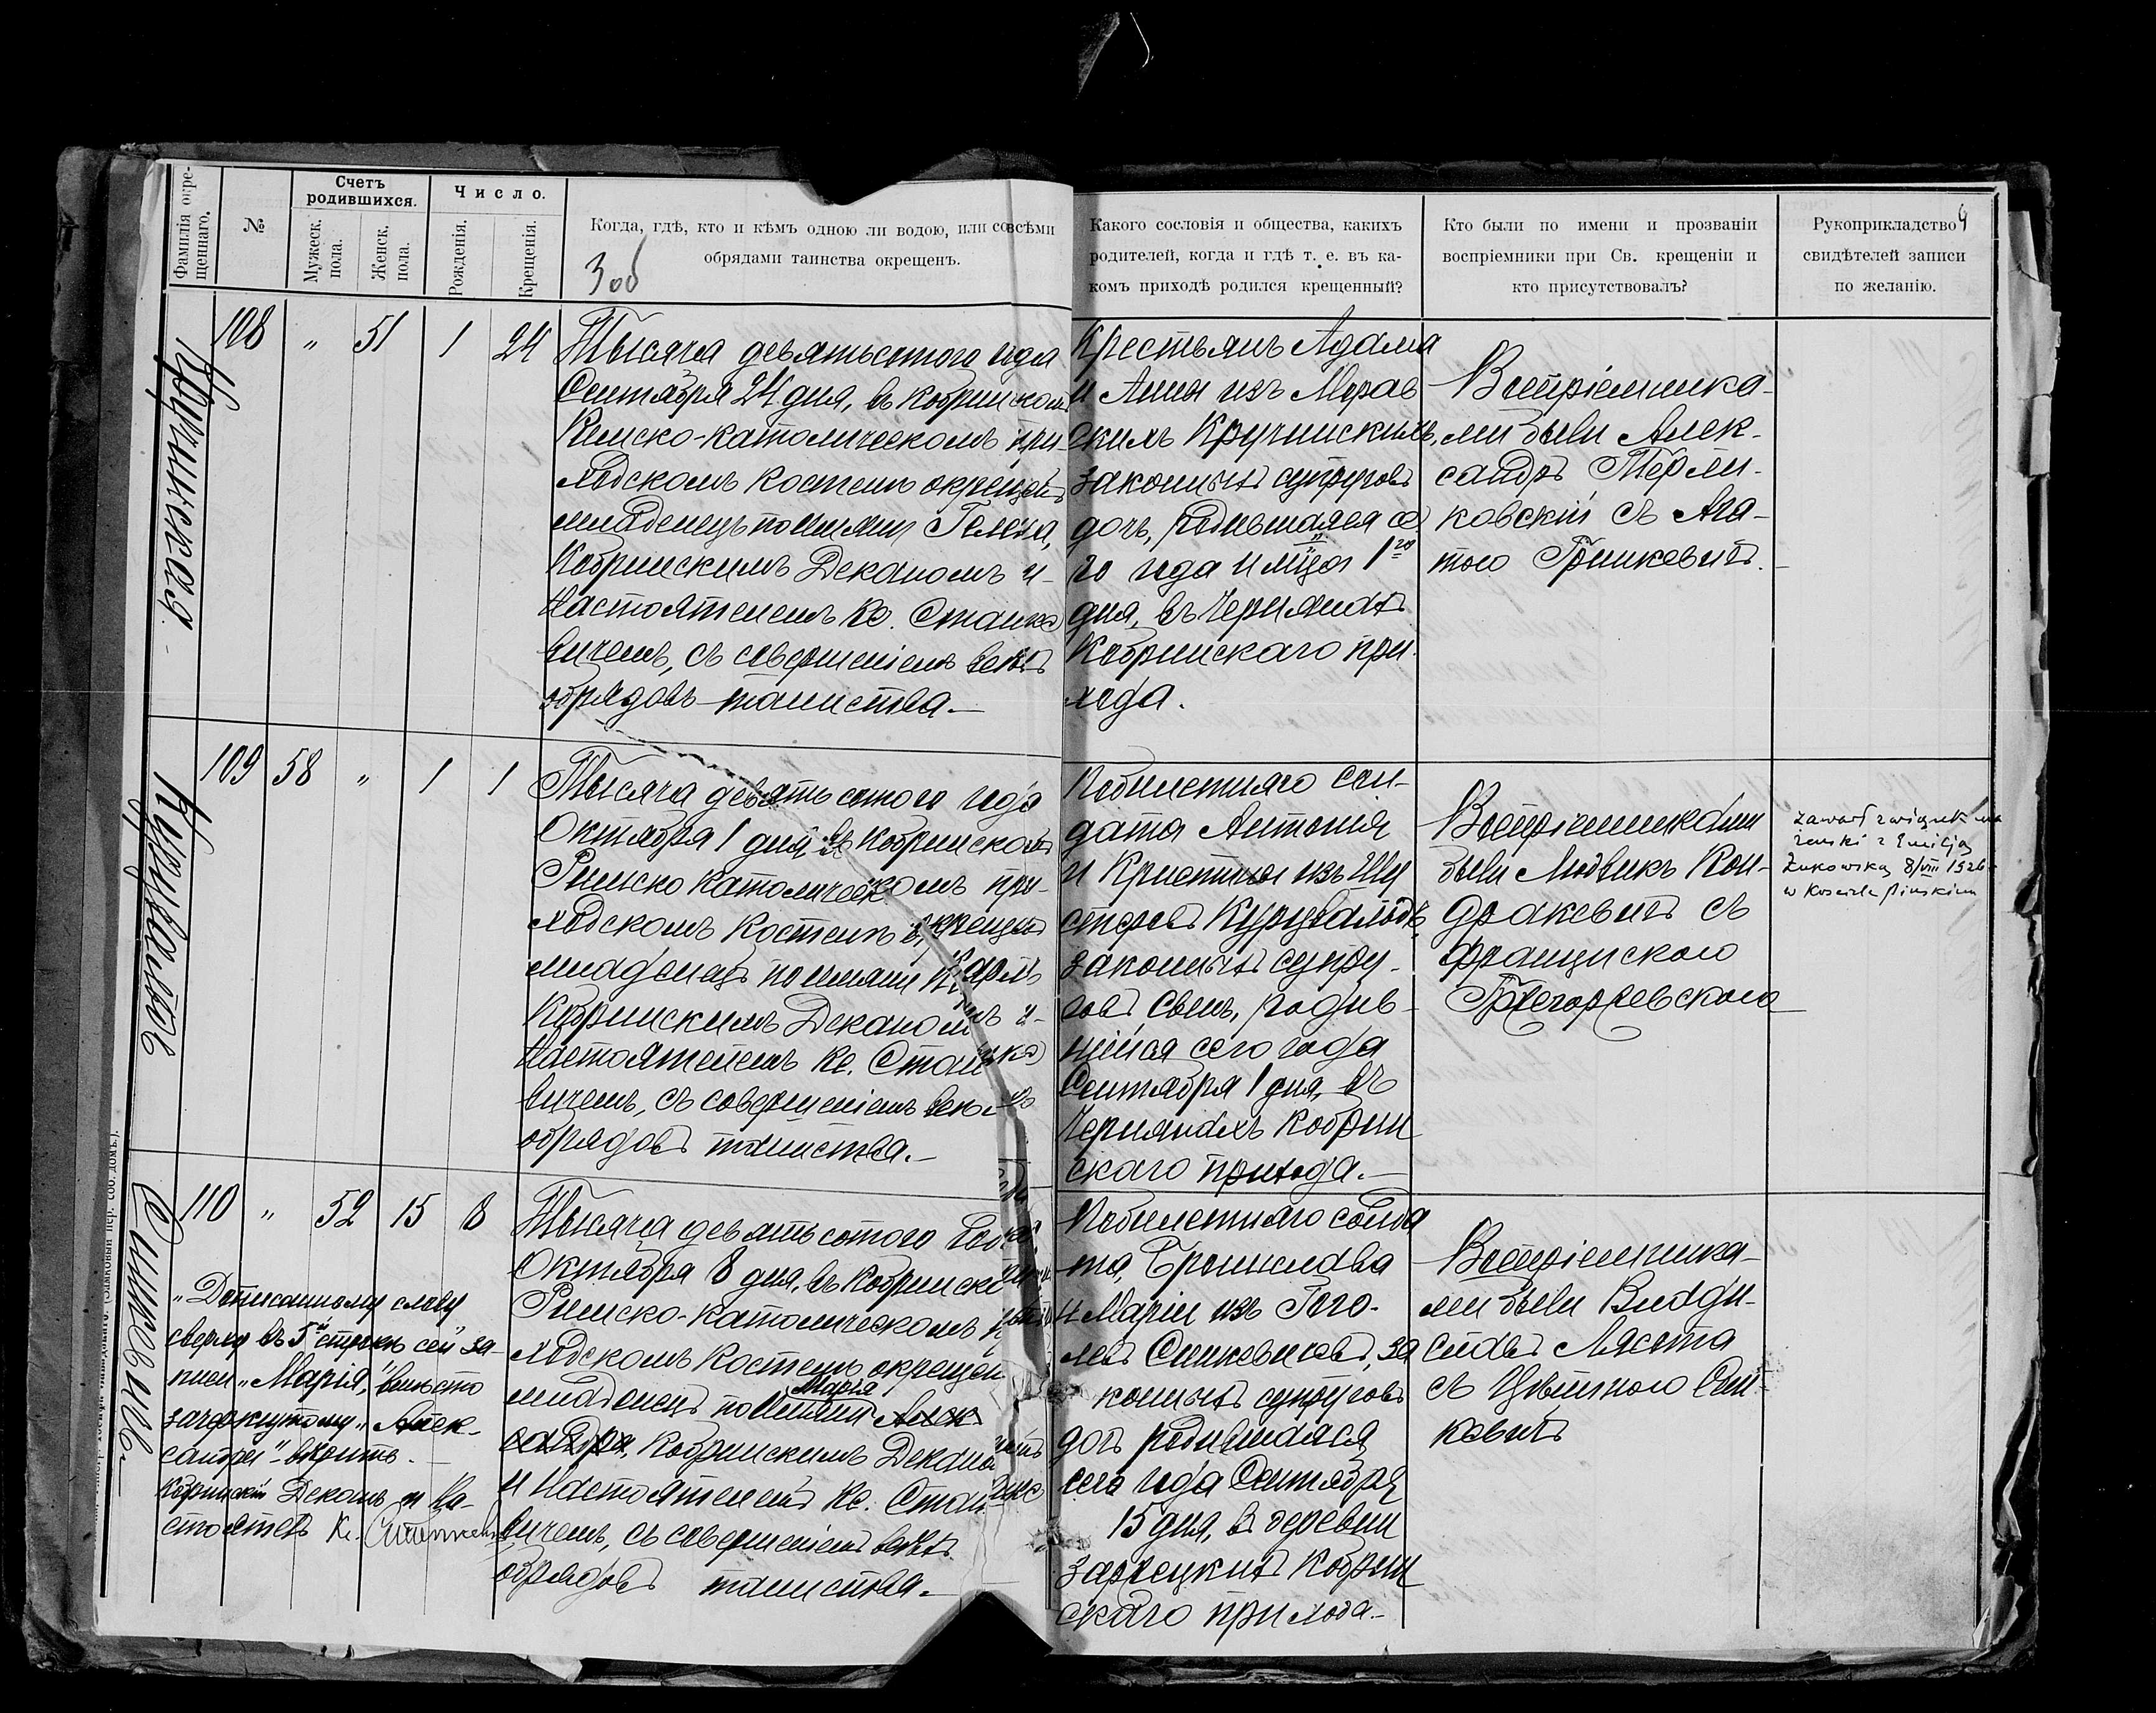 Фамилія окре-
щеннаго.
№
Счетъ
родившихся.
Мужеск.
пола.
Женск.
пола.
Число.
Рожденія.
Крещенія.
Когда, гдѣ, кто и кѣмъ одною ли водою, или совсѣми
обрядами таинства окрещенъ.
Зоб
Какого сословія и общества, какихъ
родителей, когда и гдѣ т. е. въ ка-
комъ приходѣ родился крещенный?
Кто были по имени и прозванію
воспріемники при Св. крещеніи и
кто присутствовалъ?
Рукоприкладство
свидѣтелей записи
по желанію.
Кручинская
108 " 51 1 24
Тысяча девятьсотого года
Сентября 24 дня, въ Кобринскомъ
Римско-католическомъ при-
ходскомъ костелѣ окрещенъ
младенецъ по имени Гелена,
Кобринскимъ Деканомъ и
Настоятелемъ Кс. Станке-
вичемъ, съ совершеніемъ всѣхъ
обрядовъ таинства.
Крестьянъ Адама
и Анны изъ Морав
скихъ Кручинскихъ,
законныхъ супруговъ
дочь, родившаяся се
го года и мѣсяца 1го
дня, въ Чернянахъ
Кобринскаго при-
хода.
Воспріемника-
ми были Алек-
сандръ Терли-
ковскій съ Ага-
тою Гринкевичъ.
Курцвальдъ
109 58 " 1 1
Тысяча девятьсотого года
Октября 1 дня въ Кобринскомъ
Римско католическомъ при-
ходскомъ костелѣ окрещенъ
младенецъ по имени Карлъ
Кобринскимъ Деканомъ и
Настоятелемъ Кс. Станке
вичемъ, съ совершеніемъ всѣхъ
обрядовъ таинства.
Побилетнаго сол-
дата Антонія
и Кристины изъ Шу
стеровъ Курцвальдъ,
законныхъ супру-
говъ сынъ, родив-
шійся сего года
Сентября 1 дня, въ
Чернянахъ Кобрин
скаго прихода.
Воспріемниками
были Людвикъ Кон-
дракевичъ съ
Францискою
Грегоржевскою
zawarł związek ma
żeński z Emilją
Żukowską 8/VIII 1926
w Kościele Pińskim
Синкевичъ
110 " 52 15 8
Тысяча девятьсотого года
Октября 8 дня, въ Кобринско
Римско-католическомъ
ходскомъ костелѣ окрещен
Марія
младенецъ по имени Алек
сандра, Кобринскимъ Декано
и Настоятелемъ Кс. Станке
вичемъ, съ совершеніемъ всѣхъ
обрядовъ таинства.
"Дописанному слову
сверху въ 5й строкѣ сей за-
писи "Марія," вмѣсто
зачеркнутому "Алек-
сандра" вѣрить.
Кобринскій Деканъ и На-
стоятель Кс. Станкевичъ
Побилетнаго солда
та, Бронислава
и Маріи изъ Гого-
левъ Синкевичовъ, за
конныхъ супруговъ
дочь родившаяся
сего года Сентября
15 дня, въ деревни
Зарѣцкихъ Кобрин
скаго прихода.
Воспріемника-
ми были Влади-
славъ Лясота
съ Син
кевичъ